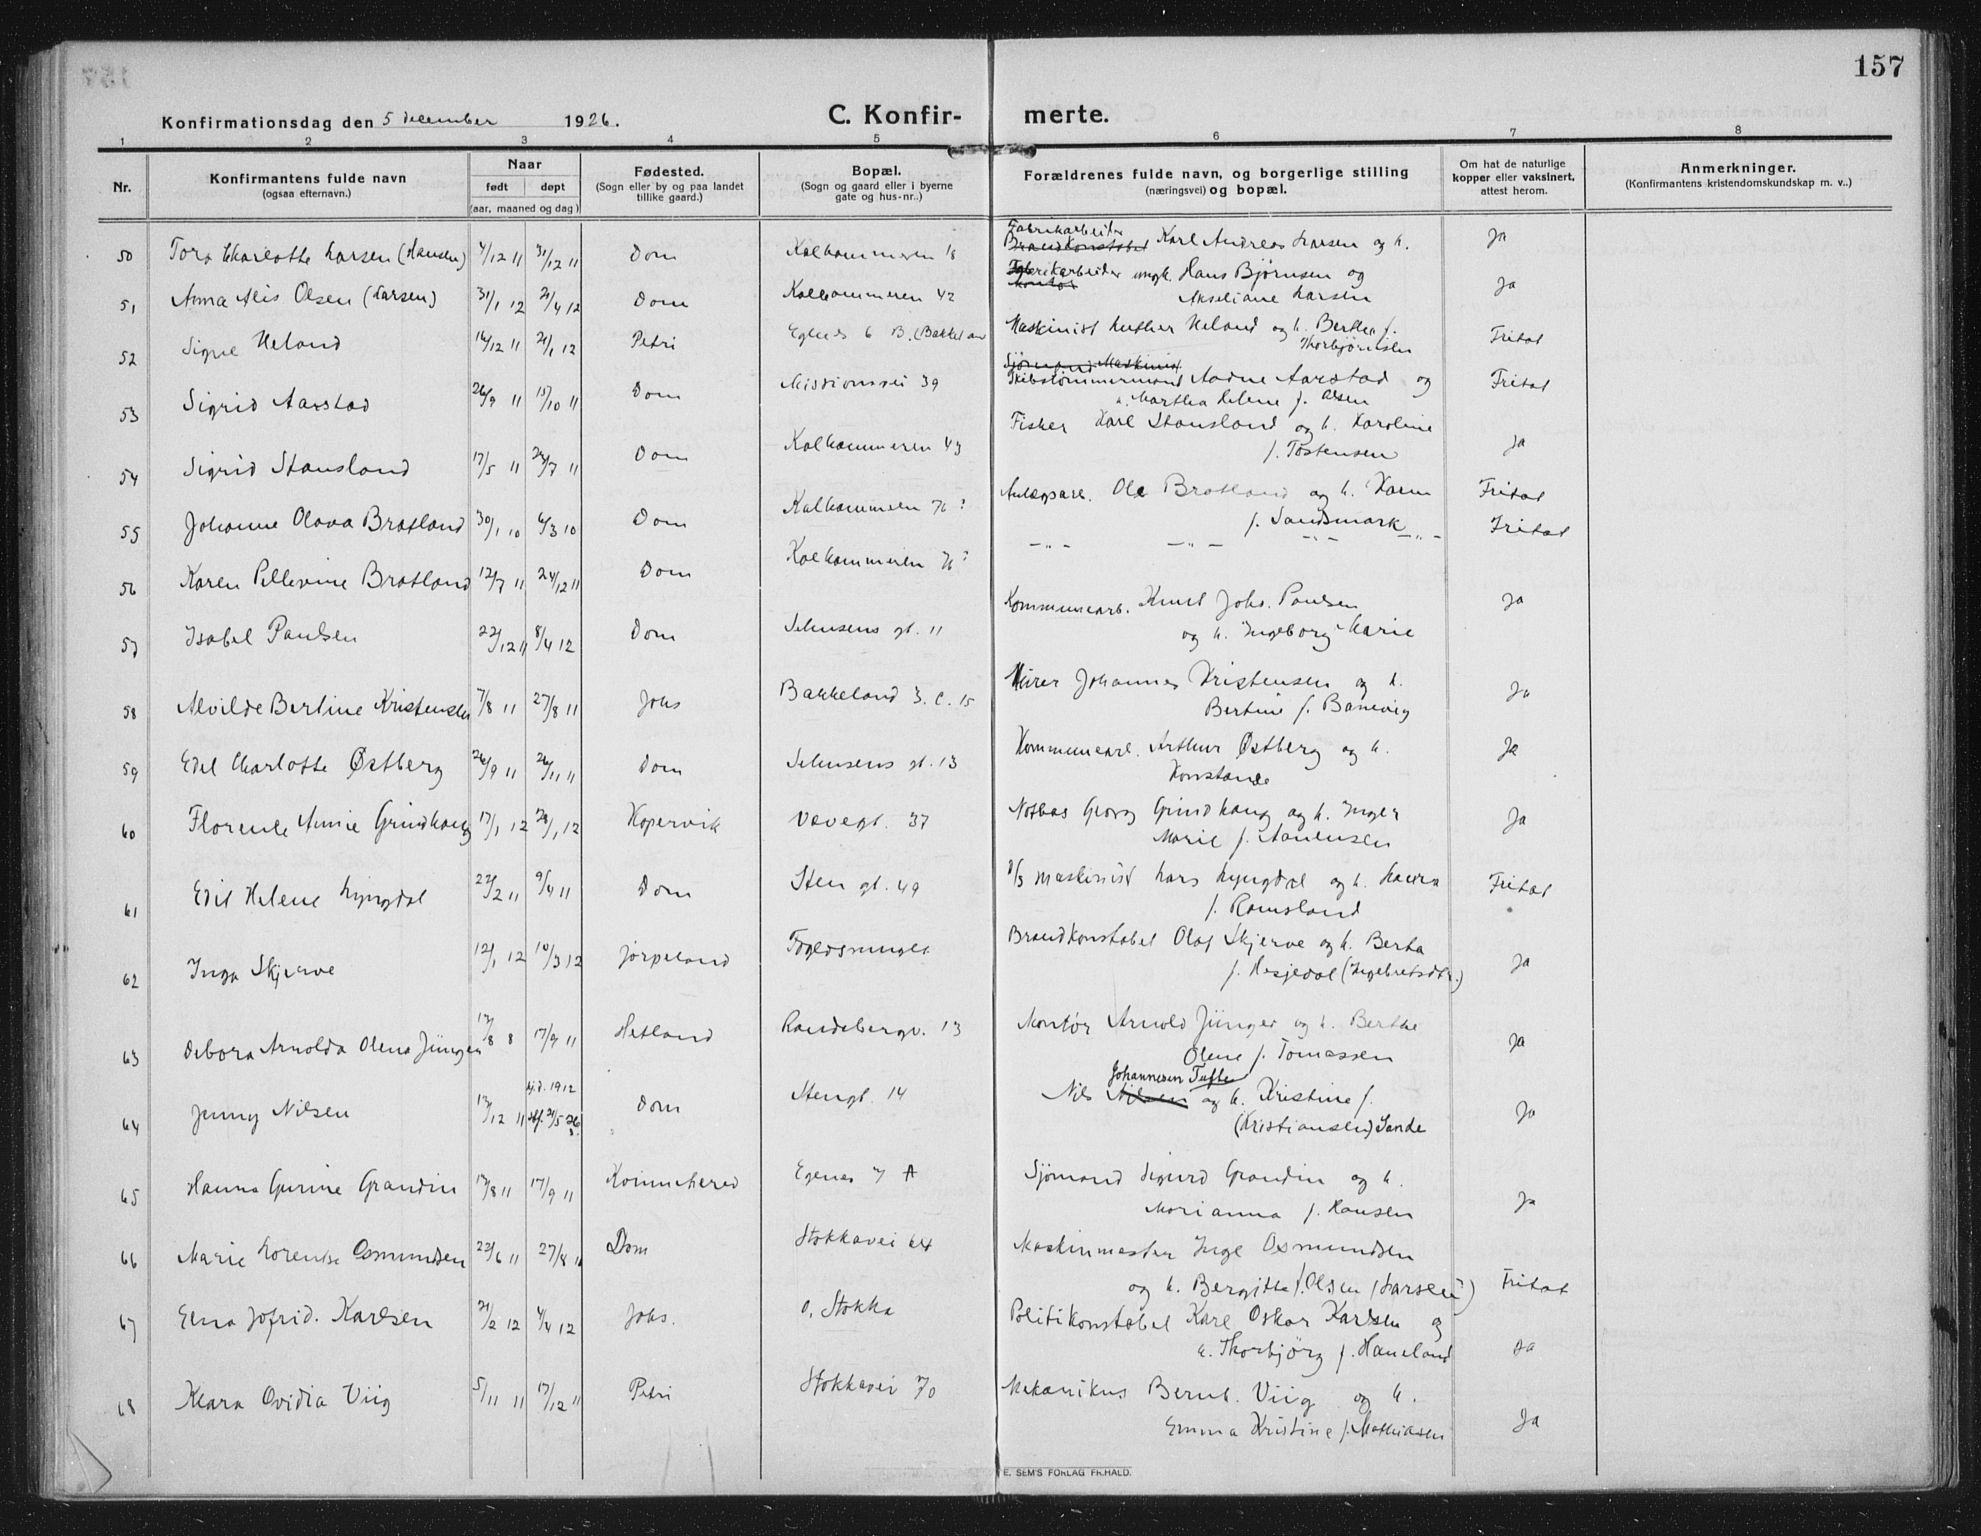 157
Konfirmationsdag den 5 december 1926.
C. Konfirmerte.
1 2 3 4 5 6 7 8
Nr.
Konfirmantens fulde navn
(ogsaa efternavn.)
Naar
født døpt
(aar, maaned og dag)
Fødested.
(Sogn eller by og paa landet
tillike gaard.)
Bopæl.
(Sogn og gaard eller i byerne
gate og hus-nr..)
Forældrenes fulde navn, og borgerlige stilling
(næringsvei) og bopæl.
Om hat de naturlige
kopper eller vaksinert,
attest herom.
Anmerkninger.
(Konfirmantens kristendomskundskap m. v..)
50 Tora Charlotte Larsen (Hansen) 4/12 11 31/12 11 Dom Kalhammeren 18 Fabrikarbeider Brandkonstabel Karl Andreas Larsen og h. Ja
51 Anna Alis Olsen (Larsen) 31/1 12 21/4 12 Dom Kalhammeren 42 Fabrikarbeider ungk. Hans Bjørnsen og
Akseliane Larsen Ja
52 Signe Heland 14/12 11 21/1 12 Petri Egenes 6 B. Maskinist Luther Heland og h. Berthe f.
Thorbjørnsen Fritat
53 Sigrid Aarstad 26/9 11 15/10 11 Dom Missionsvei 39 Maskinist
Skibstømmermand Aadne Aarstad og
h. Martha Helene f. Olsen Fritat
54 Sigrid Stausland 17/5 11 Dom Kalhammeren 43 Fisker Karl Stausland og h. Karoline
f. Tostensen Ja
55 Johanne Olava Bratland 30/1 10 6/3 10 Dom Kalhammeren Anlægsarb. Ole Bratland og h. Karen
f. Sandsmark Fritat
56 Karen Pellevine Bratland 12/7 11 24/12 11 Dom Kalhammeren — " — — " — — " — — " — Fritat
57 Isabel Paulsen 22/12 11 8/4 12 Dom Jelmsens gt. 11 Kommunearb. Knut Johs. Paulsen
og h. Ingeborg Marie Ja
58 Alvilde Bertine Kristensen 7/8 11 27/8 11 Johs Bakkeland 3. C. 15 Murer Johannes Kristensen og h.
Bertine f. Banevig Ja
59 Edel Charlotte Østberg 26/9 11 26/11 11 Dom Jelmsens gt. 13 Kommunearb. Arthur Østberg og h.
Konstance Ja
60 Florence Annie Grindhaug 17/1 12 28/1 12 Kopervik Vævegt. 37 Notbas Georg Grindhaug og h. Inger
Marie f. Aanensen Ja
61 Edit Helene Lyngdal 22/2 11 9/4 11 Dom Sten gt. 49 D/S maskinist Lars Lyngdal og h. Laura
f. Ramsland Fritat
62 Inga Skjerve 12/1 12 10/3 12 Jørpeland Brandkonstabel Olaf Skjerve og h. Berta
f. Hesjedal (Ingebretsdtr.) Ja
63 Debora Arnolda Olena Jünger 17/8 8 17/9 11 Hetland Randabergv. 13 Montør Arnold Jünger og h. Berthe
Olene f. Tomassen Ja
64 Jenny Nilsen 13/12 11 hj.d. 1912 Dom Stengt. 14 Nils Nilsen Johannesen Tufte og h. Kristine f.
(Kristiansen) Sande Ja
65 Hanna Gurine Grandin 17/8 11 17/9 11 Egenes 7 A Sjømand Sigurd Grandin og h.
Marianna f. Hansen Ja
66 Marie Lorentse Osmundsen 22/6 11 27/8 11 Dom Stokkavei 64 Maskinmester Inge Osmundsen
og h. Bergitte f. Olsen (Larsen) Fritat
67 Elna Jofrid. Karlsen 21/2 12 4/4 12 Johs. Ø, Stokka Politikonstabel Karl Oskar Karlsen og
h. Thorbjørg f. Haneland Ja
68 Klara Ovidia Viig 5/11 11 17/12 11 Petri Stokkavei 70 Mekanikus Bernh. Viig og h.
Emma Kristine f. Mathiasen Ja
E. SEM'S FORLAG FR.HALD.